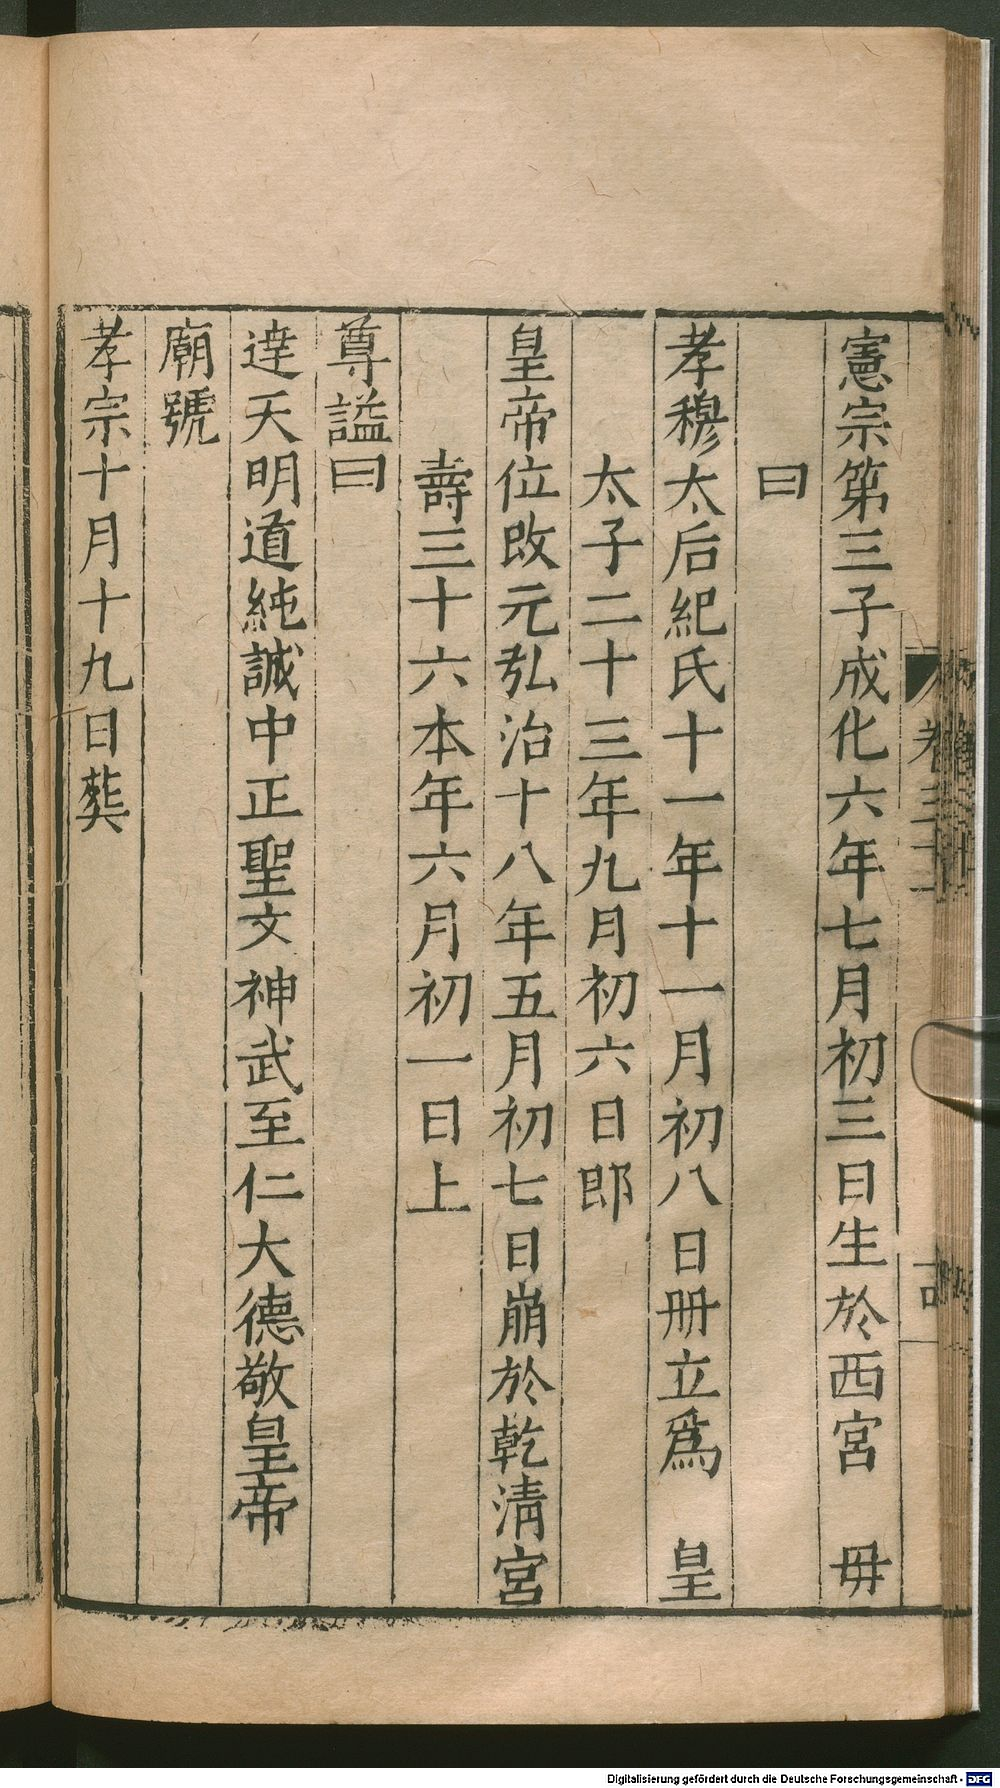 憲宗第三子成化六年七月初三日生於西宮 毋
曰
孝穆太后紀氏十一年十一月初八日冊立爲 皇
太子二十三年九月初六日郎
皇帝位改元弘治十八年五月初七日崩於乾淸宮
壽三十六本年六月初一日上
尊謚曰
達天明道純誠中正聖文神武至仁大德敬皇帝
廟號
孝宗十月十九日葬
卷三十二
Digitalisierung gefördert durch die Deutsche Forschungsgemeinschaft - DFG